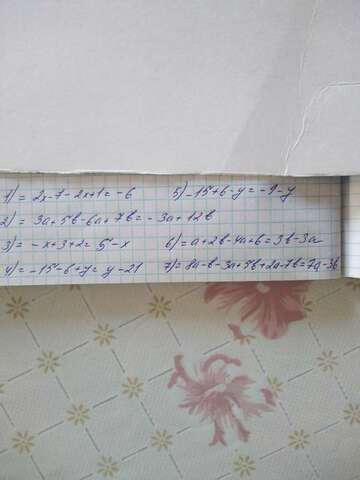 1) = 2x-7-2x+1=-6 5) -15+6-y=-9-y
2) = 3a+5b-6a+7b=-3a+12b
3) = -x+3+2=5-x 6) = a+2b-4a+b=3b-3a
4) = -15-6+y=y-21 7) = 8a-b-3a+5b+2a-7b=7a-3b